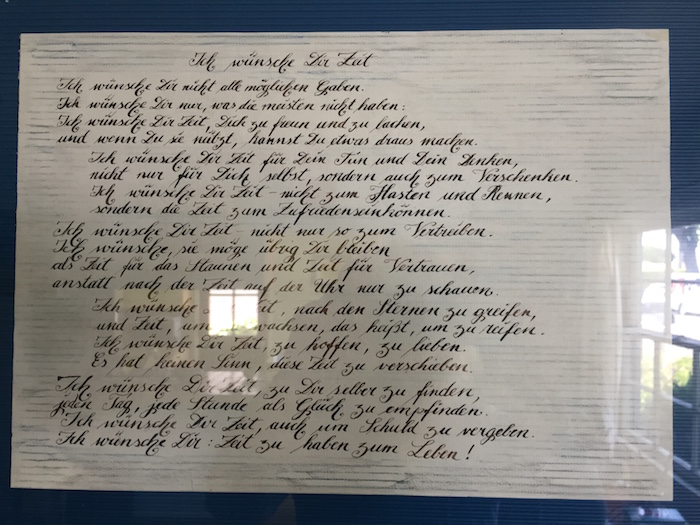 Ich wünsche Dir Zeit
Ich wünsche Dir nicht alle möglichen Gaben.
Ich wünsche Dir nur, was die meisten nicht haben:
Ich wünsche Dir Zeit, Dich zu freun und zu lachen,
und wenn Du sie nützt, kannst Du etwas draus machen.
Ich wünsche Dir Zeit für Dein Tun und Dein Denken,
nicht nur für Dich selbst, sondern auch zum Verschenken.
Ich wünsche Dir Zeit - nicht zum Hasten und Rennen,
sondern die Zeit zum Zufriedenseinkönnen.
Ich wünsche Dir Zeit - nicht nur so zum Vertreiben.
Ich wünsche, sie möge übrig Dir bleiben
als Zeit für das Staunen und Zeit für Vertrauen,
anstatt nach der Zeit auf der Uhr nur zu schauen.
Ich wünsche Dir Zeit, nach den Sternen zu greifen,
und Zeit, um zu wachsen, das heißt, um zu reifen.
Ich wünsche Dir Zeit, zu hoffen, zu lieben.
Es hat keinen Sinn, diese Zeit zu verschieben.
Ich wünsche Dir Zeit, zu Dir selber zu finden,
jeden Tag, jede Stunde als Glück zu empfinden.
Ich wünsche Dir Zeit, auch um Schuld zu vergeben.
Ich wünsche Dir: Zeit zu haben zum Leben!